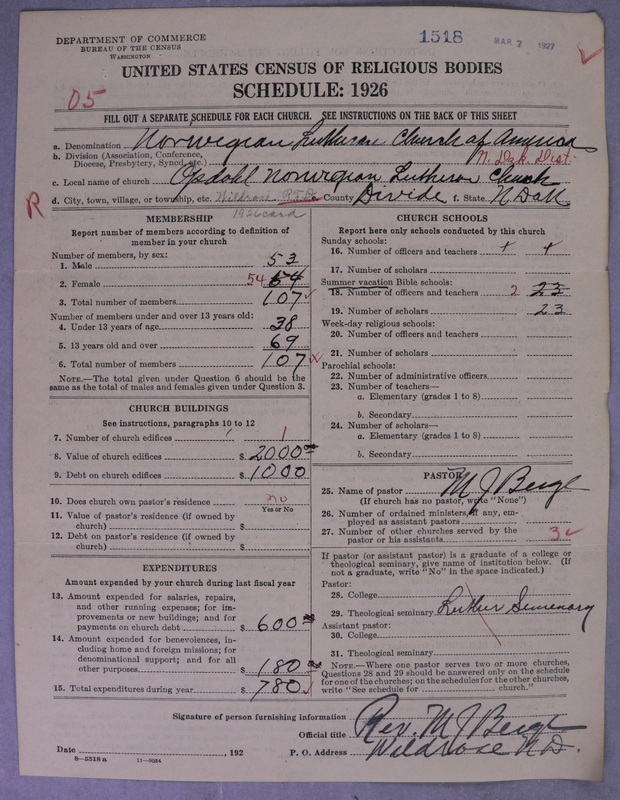 DEPARTMENT OF COMMERCE
BUREAU OF THE CENSUS
WASHINGTON
1518
MAR 7 1927
UNITED STATES CENSUS OF RELIGIOUS BODIES
SCHEDULE: 1926
05
FILL OUT A SEPARATE SCHEDULE FOR EACH CHURCH. SEE INSTRUCTIONS ON THE BACK OF THIS SHEET
a. Denomination Norwegian Lutheran Church of America
b. Division (Association, Conference, Diocese, Presbytery, Synod, etc. N. Dak. Dist.
c. Local name of church Opdahl Norwegian Lutheran Church
d. City, town, village, or township, etc. Wildrose County Divide f. State N Dak
R
1926 card
MEMBERSHIP
Report number of members according to definition of
member in your church
Number of members, by sex:
1. Male 53
2. Female 54 64
3. Total number of members 107
Number of members under and over 13 years old:
4. Under 13 years of age 38
5. 13 years old and over 69
6. Total number of members 107
NOTE.—The total given under Question 6 should be the
same as the total of males and females given under Question 3.
CHURCH BUILDINGS
See instructions, paragraphs 10 to 12
7. Number of church edifices 1
8. Value of church edifices $ 2000
9. Debt on church edifices $ 1000
10. Does church own pastor's residence no
Yes or No
11. Value of pastor's residence (if owned by
church) $
12. Debt on pastor's residence (if owned by
church) $
EXPENDITURES
Amount expended by your church during last fiscal year
13. Amount expended for salaries, repairs,
and other running expenses; for im-
provements or new buildings; and for
payments on church debt $ 600
14. Amount expended for benevolences, in-
cluding home and foreign missions; for
denominational support; and for all
other purposes $ 180
15. Total expenditures during year $ 780
CHURCH SCHOOLS
Report here only schools conducted by this church
Sunday schools:
16. Number of officers and teachers
17. Number of scholars
Summer vacation Bible schools:
18. Number of officers and teachers 2 23
19. Number of scholars 23
Week-day religious schools:
20. Number of officers and teachers
21. Number of scholars
Parochial schools:
22. Number of administrative officers
23. Number of teachers—
a. Elementary (grades 1 to 8)
b. Secondary
24. Number of scholars—
a. Elementary (grades 1 to 8)
b. Secondary
PASTOR
25. Name of pastor M J Berge
(If church has no pastor, write "None")
26. Number of ordained ministers, if any, em-
ployed as assistant pastors
27. Number of other churches served by the
pastor or his assistants 3
If pastor (or assistant pastor) is a graduate of a college or
theological seminary, give name of institution below. (If
not a graduate, write "No" in the space indicated.)
Pastor:
28. College
29. Theological seminary Luther Semenary
Assistant pastor:
30. College
31. Theological seminary
NOTE.—Where one pastor serves two or more churches,
Questions 28 and 29 should be answered only on the schedule
for one of the churches; on the schedules for the other churches,
write "See schedule for church."
Signature of person furnishing information
Official title Rev. M J Berge
Date , 192 P. O. Address Wildrose N.D.
8—5518 a 11—9034